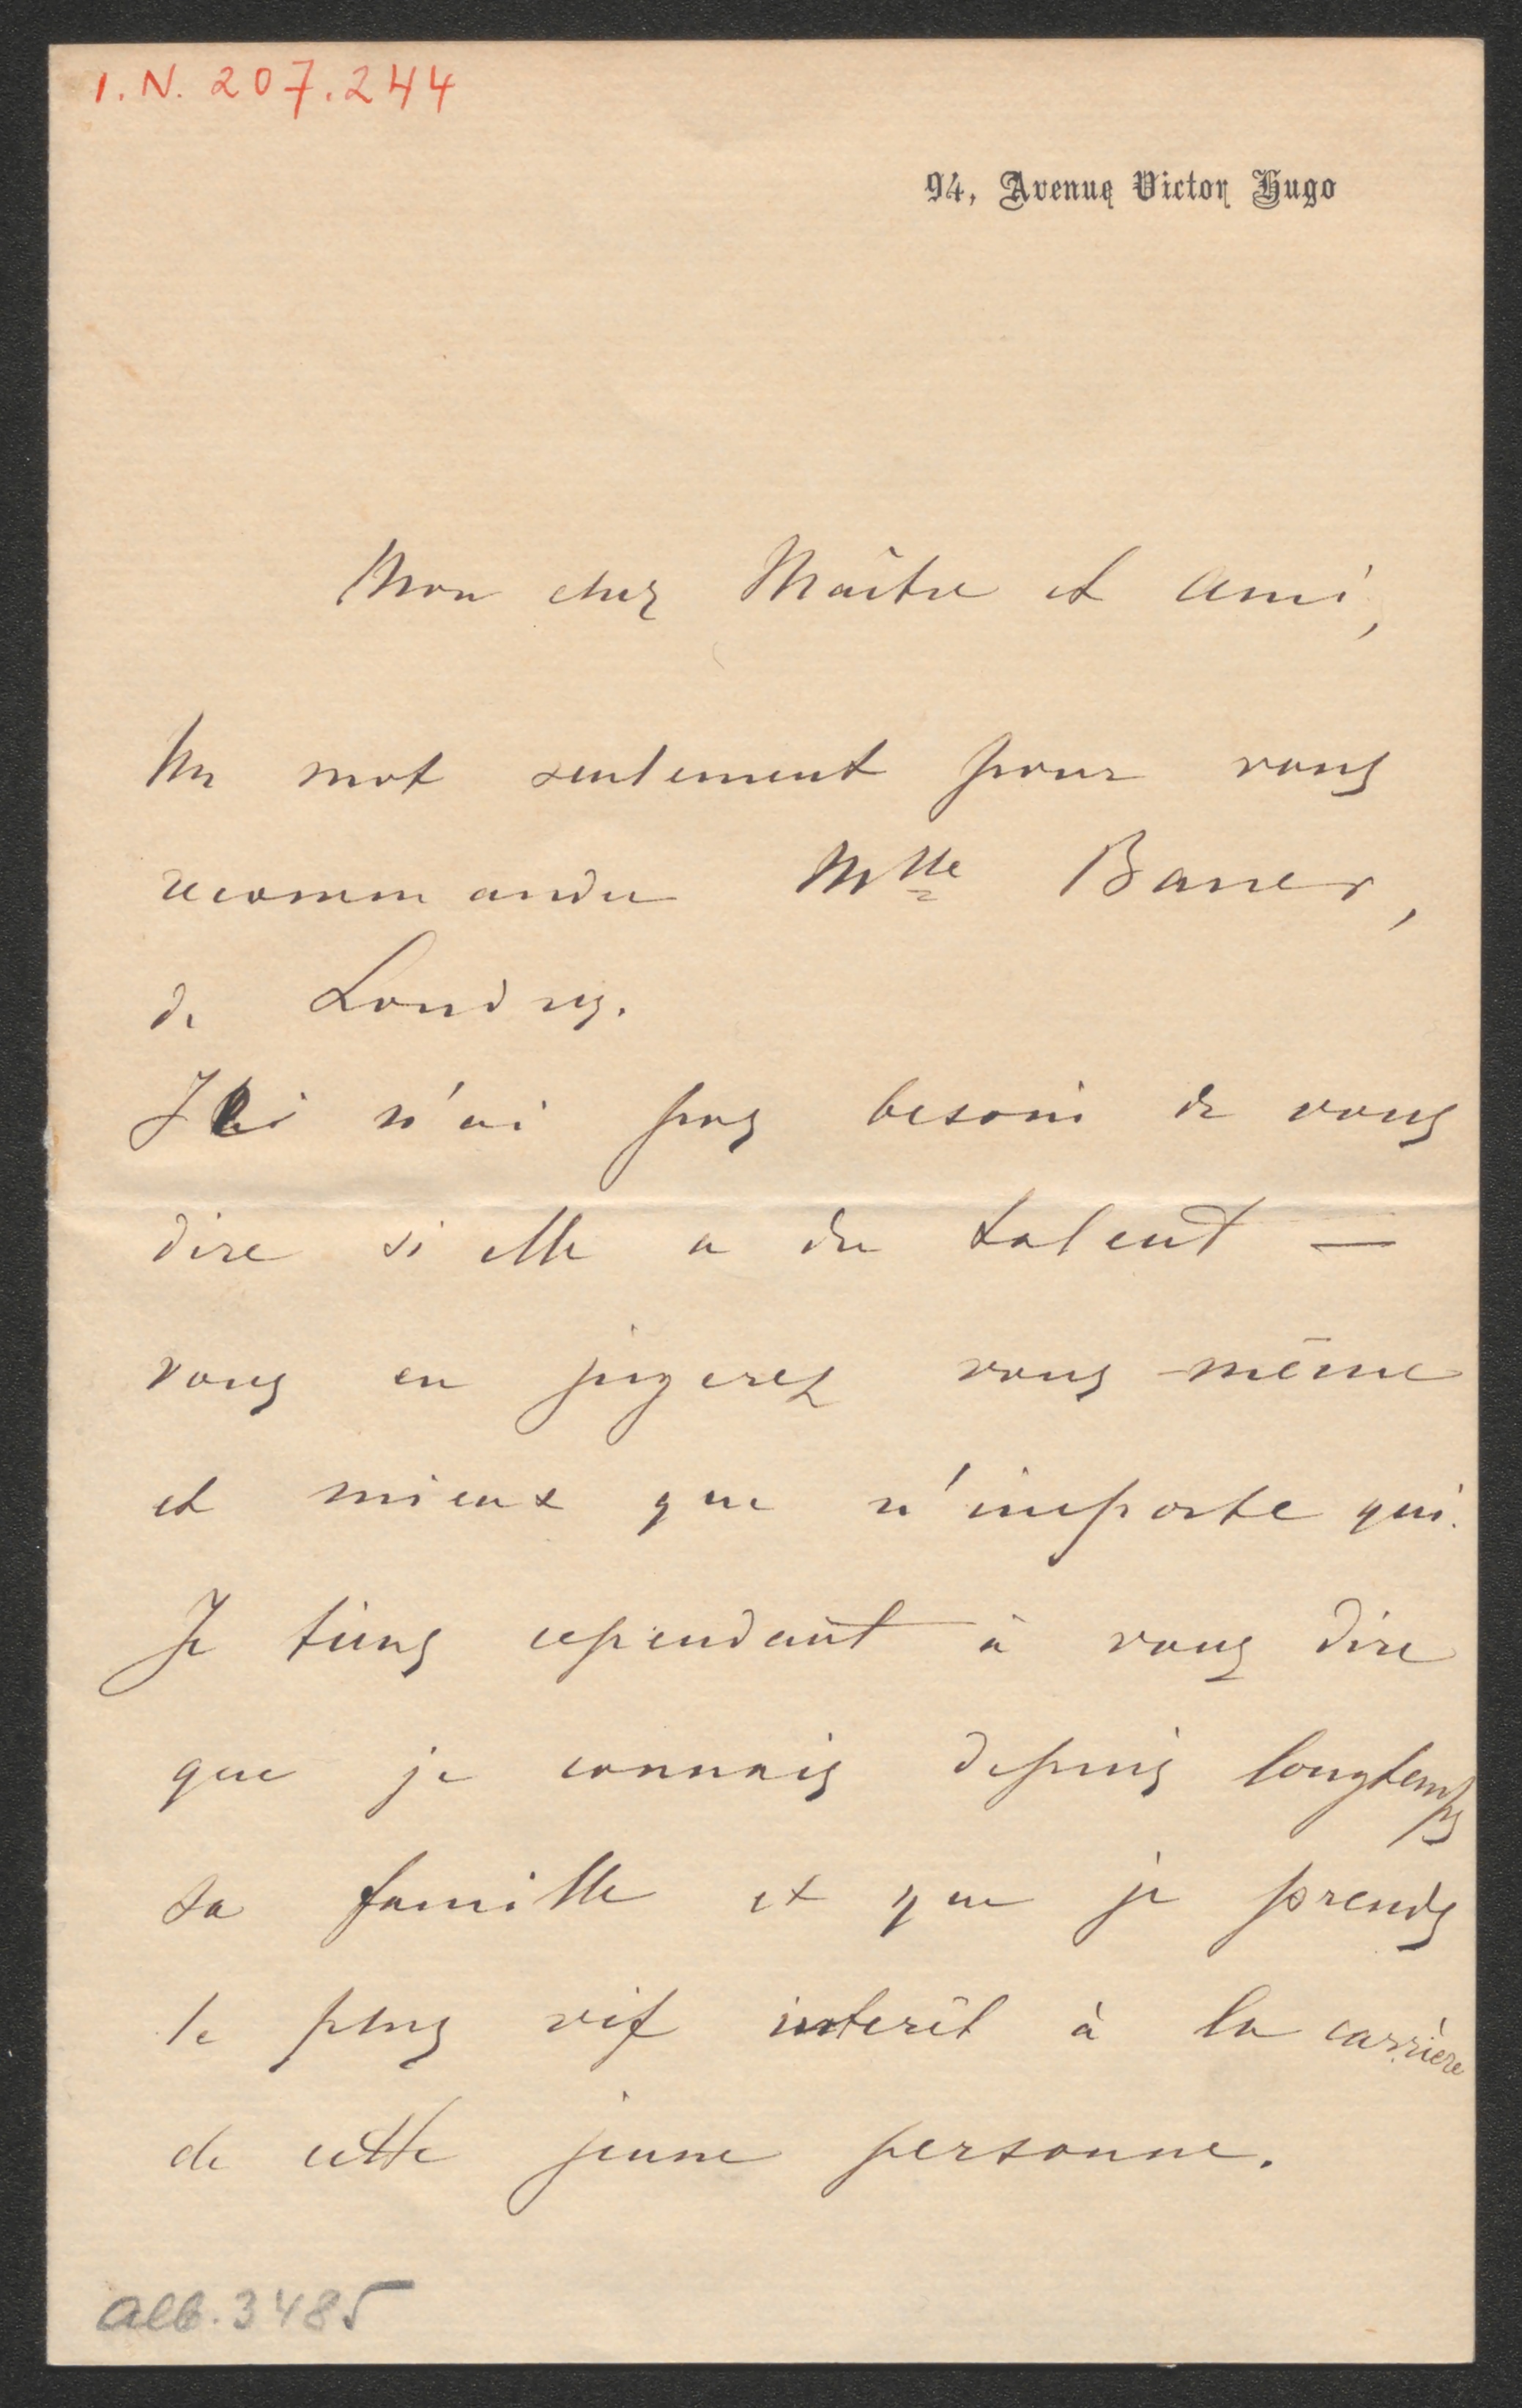 I.N. 207.244
94, Avenue Victor Hugo
Mon cher Maître et ami,
Un mot seulement pour vous
recommander Mlle Bauer,
de Londres.
Je n'ai pas besoin de vous
dire si elle a du talent —
vous en jugerez vous-même
et mieux que n'importe qui.
Je tiens cependant à vous dire
que je connais depuis longtemps
sa famille et que je prends
le plus vif interêt à la carrière
de cette jeune personne.
alb. 3485